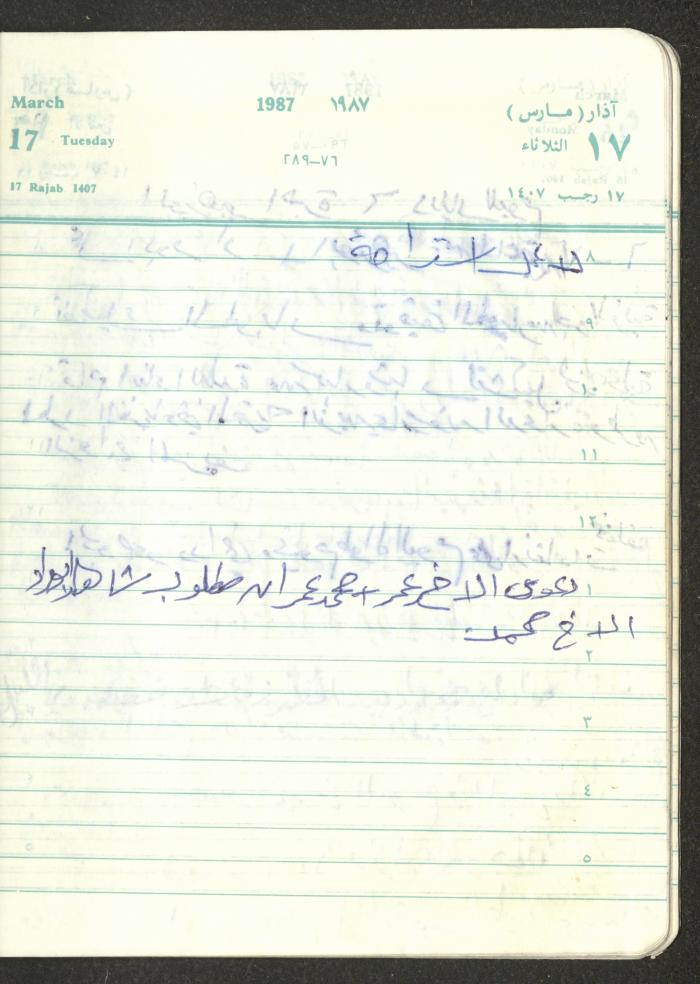 March 1987 ١٩٨٧ آذار (مارس)
17 Tuesday ٧٦-٢٨٩ الثلاثاء ١٧
17 Rajab 1407 ١٧ رجب ١٤٠٧
٨ استراحة
٩
١٠
١١
١٢
١ دعوى الاخ عمر + حمد عمران مطلوب شاهد
الاخ محمد
٢
٣
٤
٥